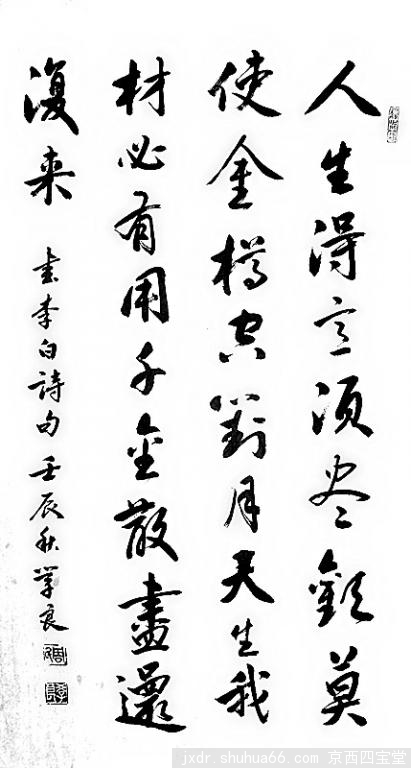 人生得意须尽欢莫
使金樽空對月天生我
材必有用千金散盡還
復来
書李白詩句壬辰秋學良
jxdr.shuhua66.com 京西四宝堂